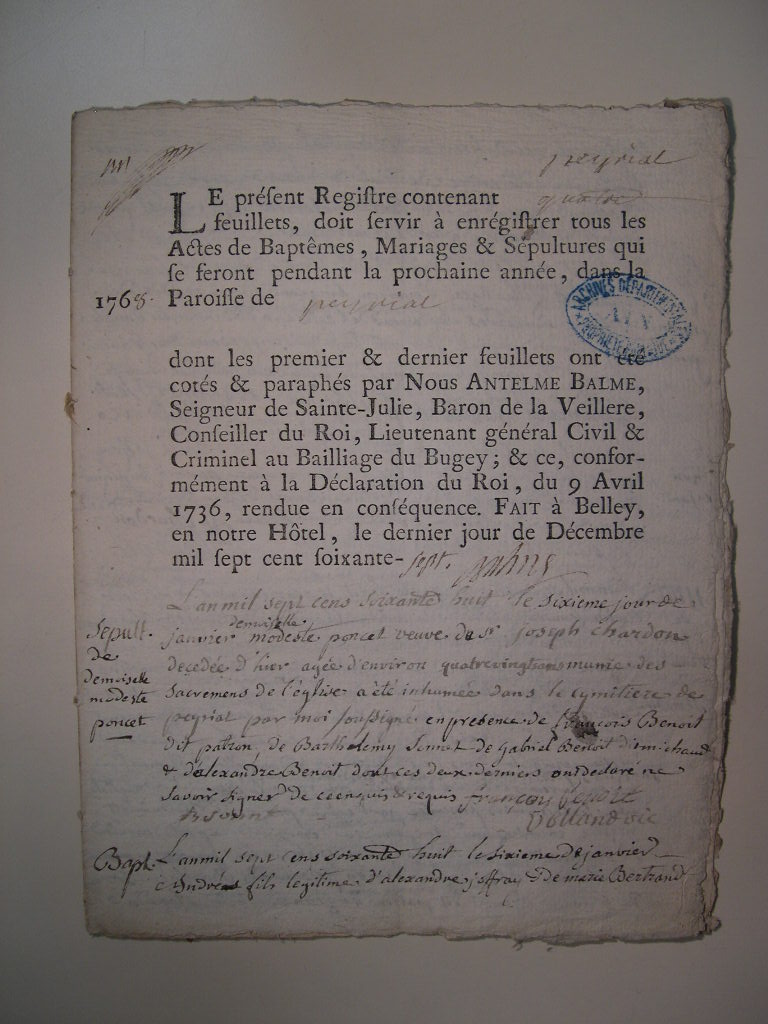 peyrial
LE préſent Regiſtre contenant quatre
feuillets, doit ſervir à enrégiſtrer tous les
Actes de Baptêmes, Mariages & Sépultures qui
ſe feront pendant la prochaine année, dans la
1768. Paroiſſe de peyrial
ARCHIVES DÉPARTEMENTALES
AIN
PROPRIÉTÉ PUBLIQUE
dont les premier & dernier feuillets ont été
cotés & paraphés par Nous ANTELME BALME,
Seigneur de Sainte-Julie, Baron de la Veillere,
Conſeiller du Roi, Lieutenant général Civil &
Criminel au Bailliage du Bugey; & ce, confor-
mément à la Déclaration du Roi, du 9 Avril
1736, rendue en conſéquence. FAIT à Belley,
en notre Hôtel, le dernier jour de Décembre
mil ſept cent ſoixante-sept. Balme
Sepult.
de
demoiselle
modeste
poncet
L'an mil sept cens soixante huit le sixieme jour de
demoiselle
janvier modeste poncet veuve de Sr joseph chardon
decedée d'hier agée d'environ quatrevingt ans munie des
Sacremens de l'église a été inhumée dans le cymetiere de
peyrial par moi soussigné en presence de françois Benoit
dit patron, de Barthelemy de Gabriel Benoit
& d'alexandre Benoit dont ces deux derniers ont declaré ne
Savoir signer de ce enquis & requis françois
Bapt. L'an mil sept cens soixante huit le sixieme de janvier
Andréas fils légitime d'alexandre & De marie Bertrand